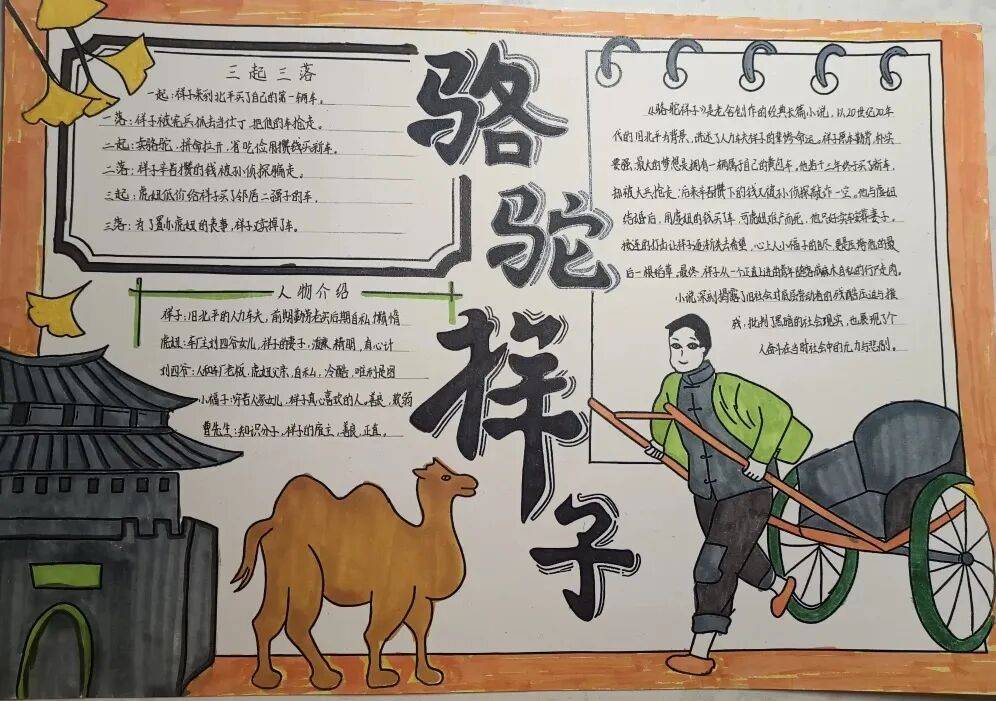 三起三落
一起：祥子来到北平买了自己的第一辆车。
一落：祥子被宪兵抓去当壮丁，把他的车抢走。
二起：卖骆驼，拼命拉开，省吃俭用攒钱买新车。
二落：祥子辛苦攒的钱被孙侦探骗走。
三起：虎妞低价给祥子买了邻居二强子的车。
三落：为了置办虎妞的丧事，祥子又卖掉了车。
人物介绍
祥子：旧北平的人力车夫，前期勤劳老实后期自私，懒惰
虎妞：车厂主刘四爷女儿，祥子的妻子，泼辣，精明，有心计
刘四爷：人和车厂老板，虎妞父亲，自私，冷酷，唯利是图
小福子：穷苦人家女儿，祥子真心喜欢的人。善良，软弱
曹先生：知识分子，祥子的雇主，善良，正直。
骆驼祥子
《骆驼祥子》是老舍创作的经典长篇小说，以20世纪20年
代的旧北平为背景，讲述了人力车夫祥子的悲惨命运。祥子原本勤劳、朴实
要强，最大的梦想是拥有一辆属于自己的黄包车，他苦干三年终于买了新车，
却被大兵抢走；后来辛苦攒下的钱又被孙侦探敲诈一空。他与虎妞
结婚后，用虎妞的钱买车，可虎妞难产而死，他只好卖车葬妻子。
接连的打击让祥子逐渐失去希望，心上人小福子的自尽，更是压垮他的最
后一根稻草。最终，祥子从一个正直上进的青年堕落成麻木自私的行尸走肉。
小说深刻揭露了旧社会对底层劳动者的残酷压迫与摧
残，批判了黑暗的社会现实，也展现了个
人奋斗在当时社会中的无力与悲剧。